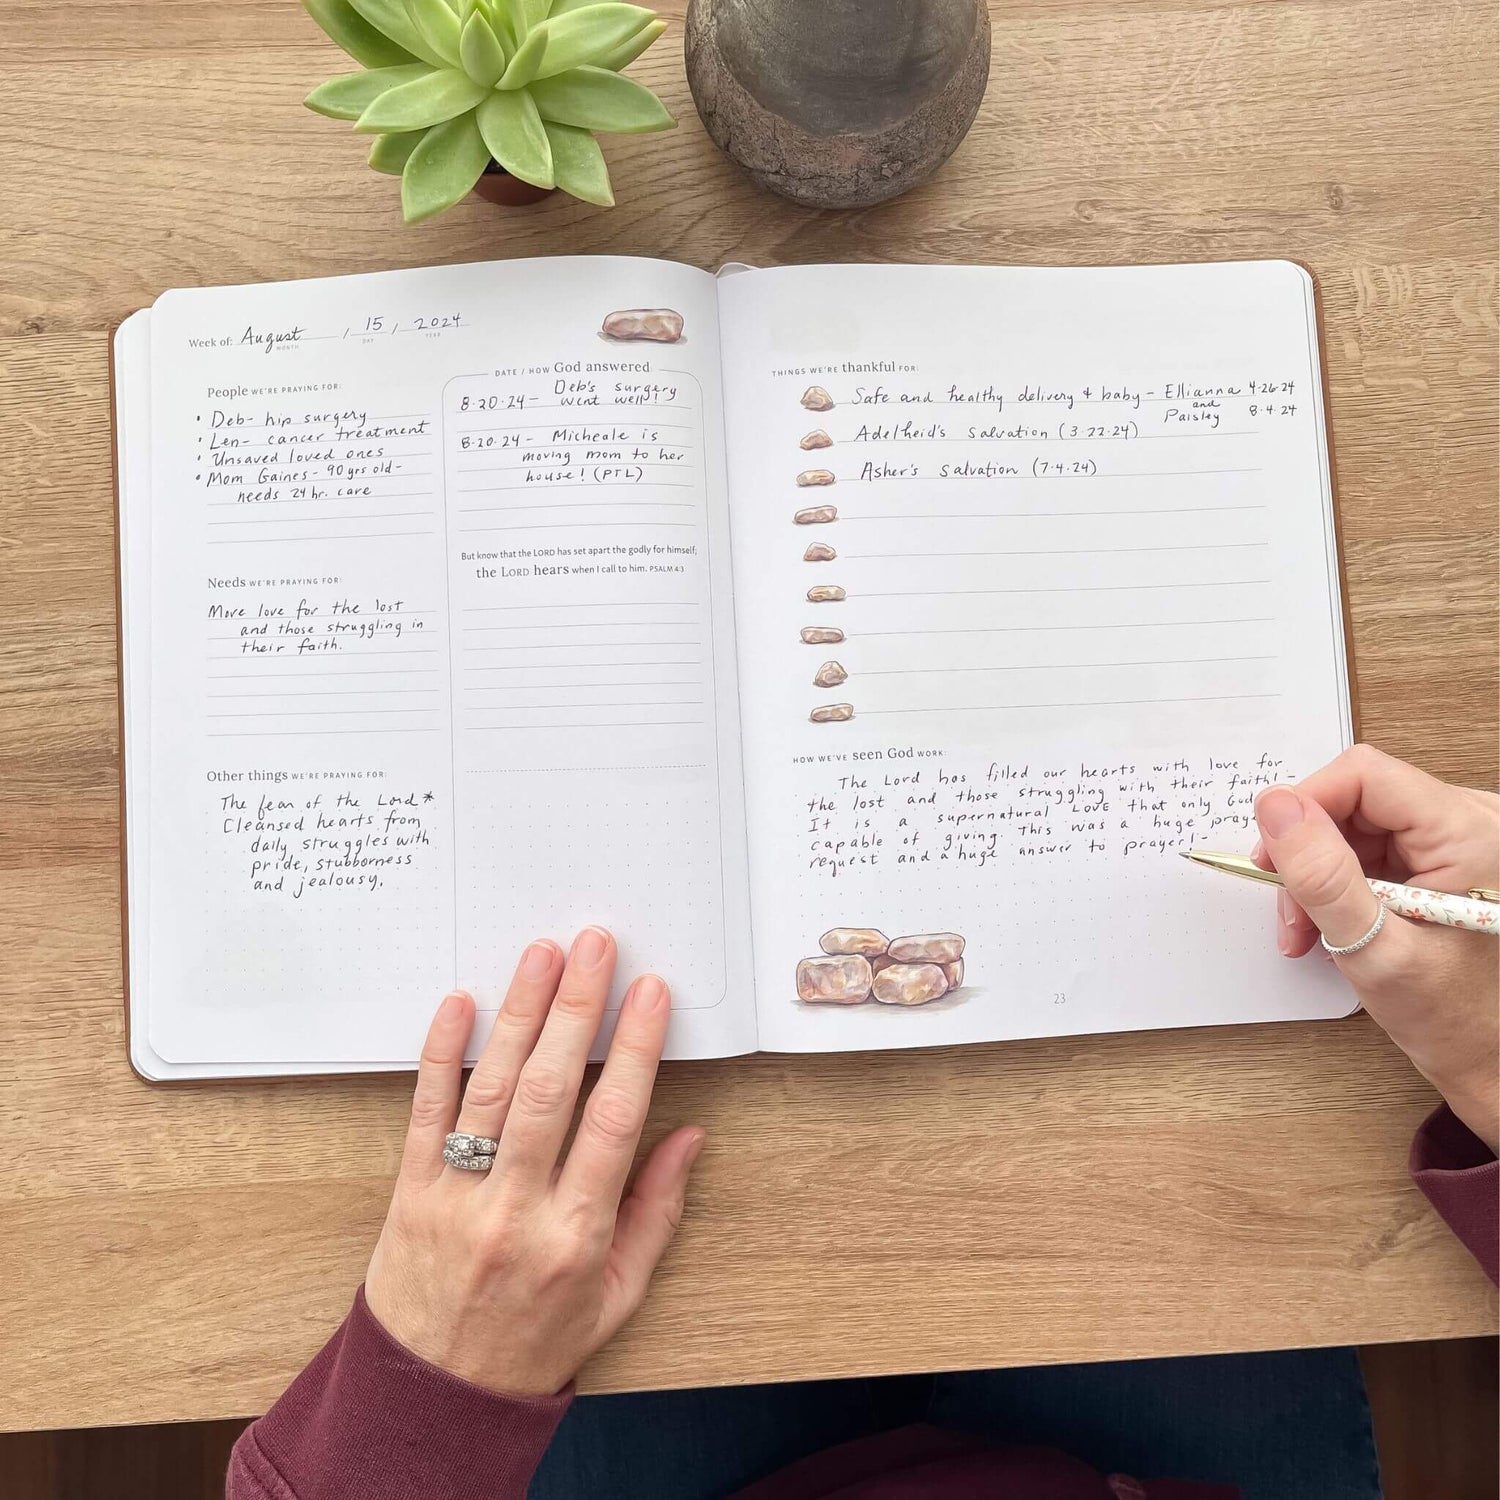 Week of: August / 15 / 2024
MONTH DAY YEAR
People WE'RE PRAYING FOR:
• Deb- hip surgery
• Len- cancer treatment
• Unsaved loved ones
• Mom Gaines - 90 yrs old -
needs 24 hr. care
Needs WE'RE PRAYING FOR:
More love for the lost
and those struggling in
their faith.
Other things WE'RE PRAYING FOR:
The fear of the Lord *
Cleansed hearts from
daily struggles with
pride, stubborness
and jealousy.
DATE / HOW God answered
Deb's surgery
8·20·24 - went well!
8·20·24 - Micheale is
moving mom to her
house! (PTL)
But know that the LORD has set apart the godly for himself;
the LORD hears when I call to him. PSALM 4:3
THINGS WE'RE thankful FOR:
Safe and healthy delivery + baby - Ellianna 4·26·24
and
Paisley 8·4·24
Adelheid's salvation (3·22·24)
Asher's salvation (7·4·24)
HOW WE'VE seen God WORK:
The Lord has filled our hearts with love for
the lost and those struggling with their faith! -
It is a supernatural LOVE that only God
capable of giving. This was a huge praye
request and a huge answer to prayer! -
23